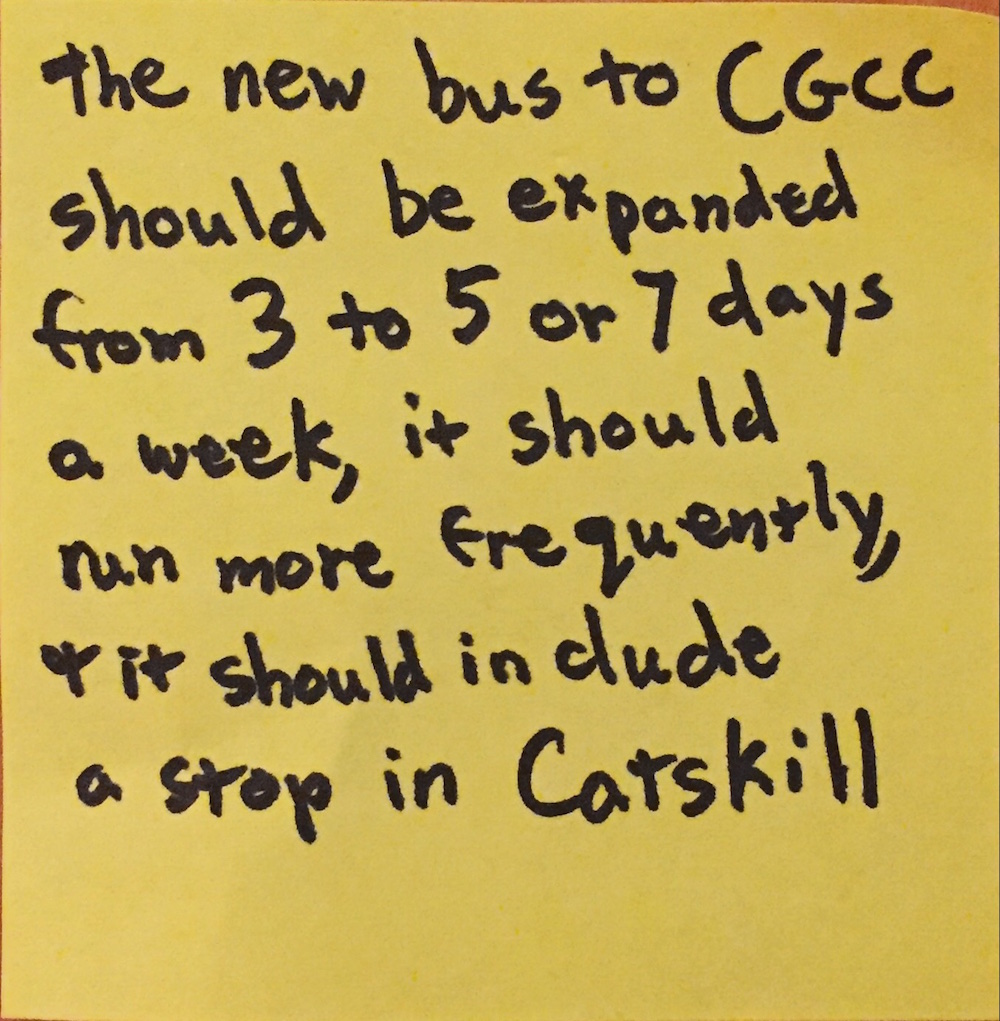 the new bus to CGCC
should be expanded
from 3 to 5 or 7 days
a week, it should
run more frequently,
+ it should include
a stop in Catskill